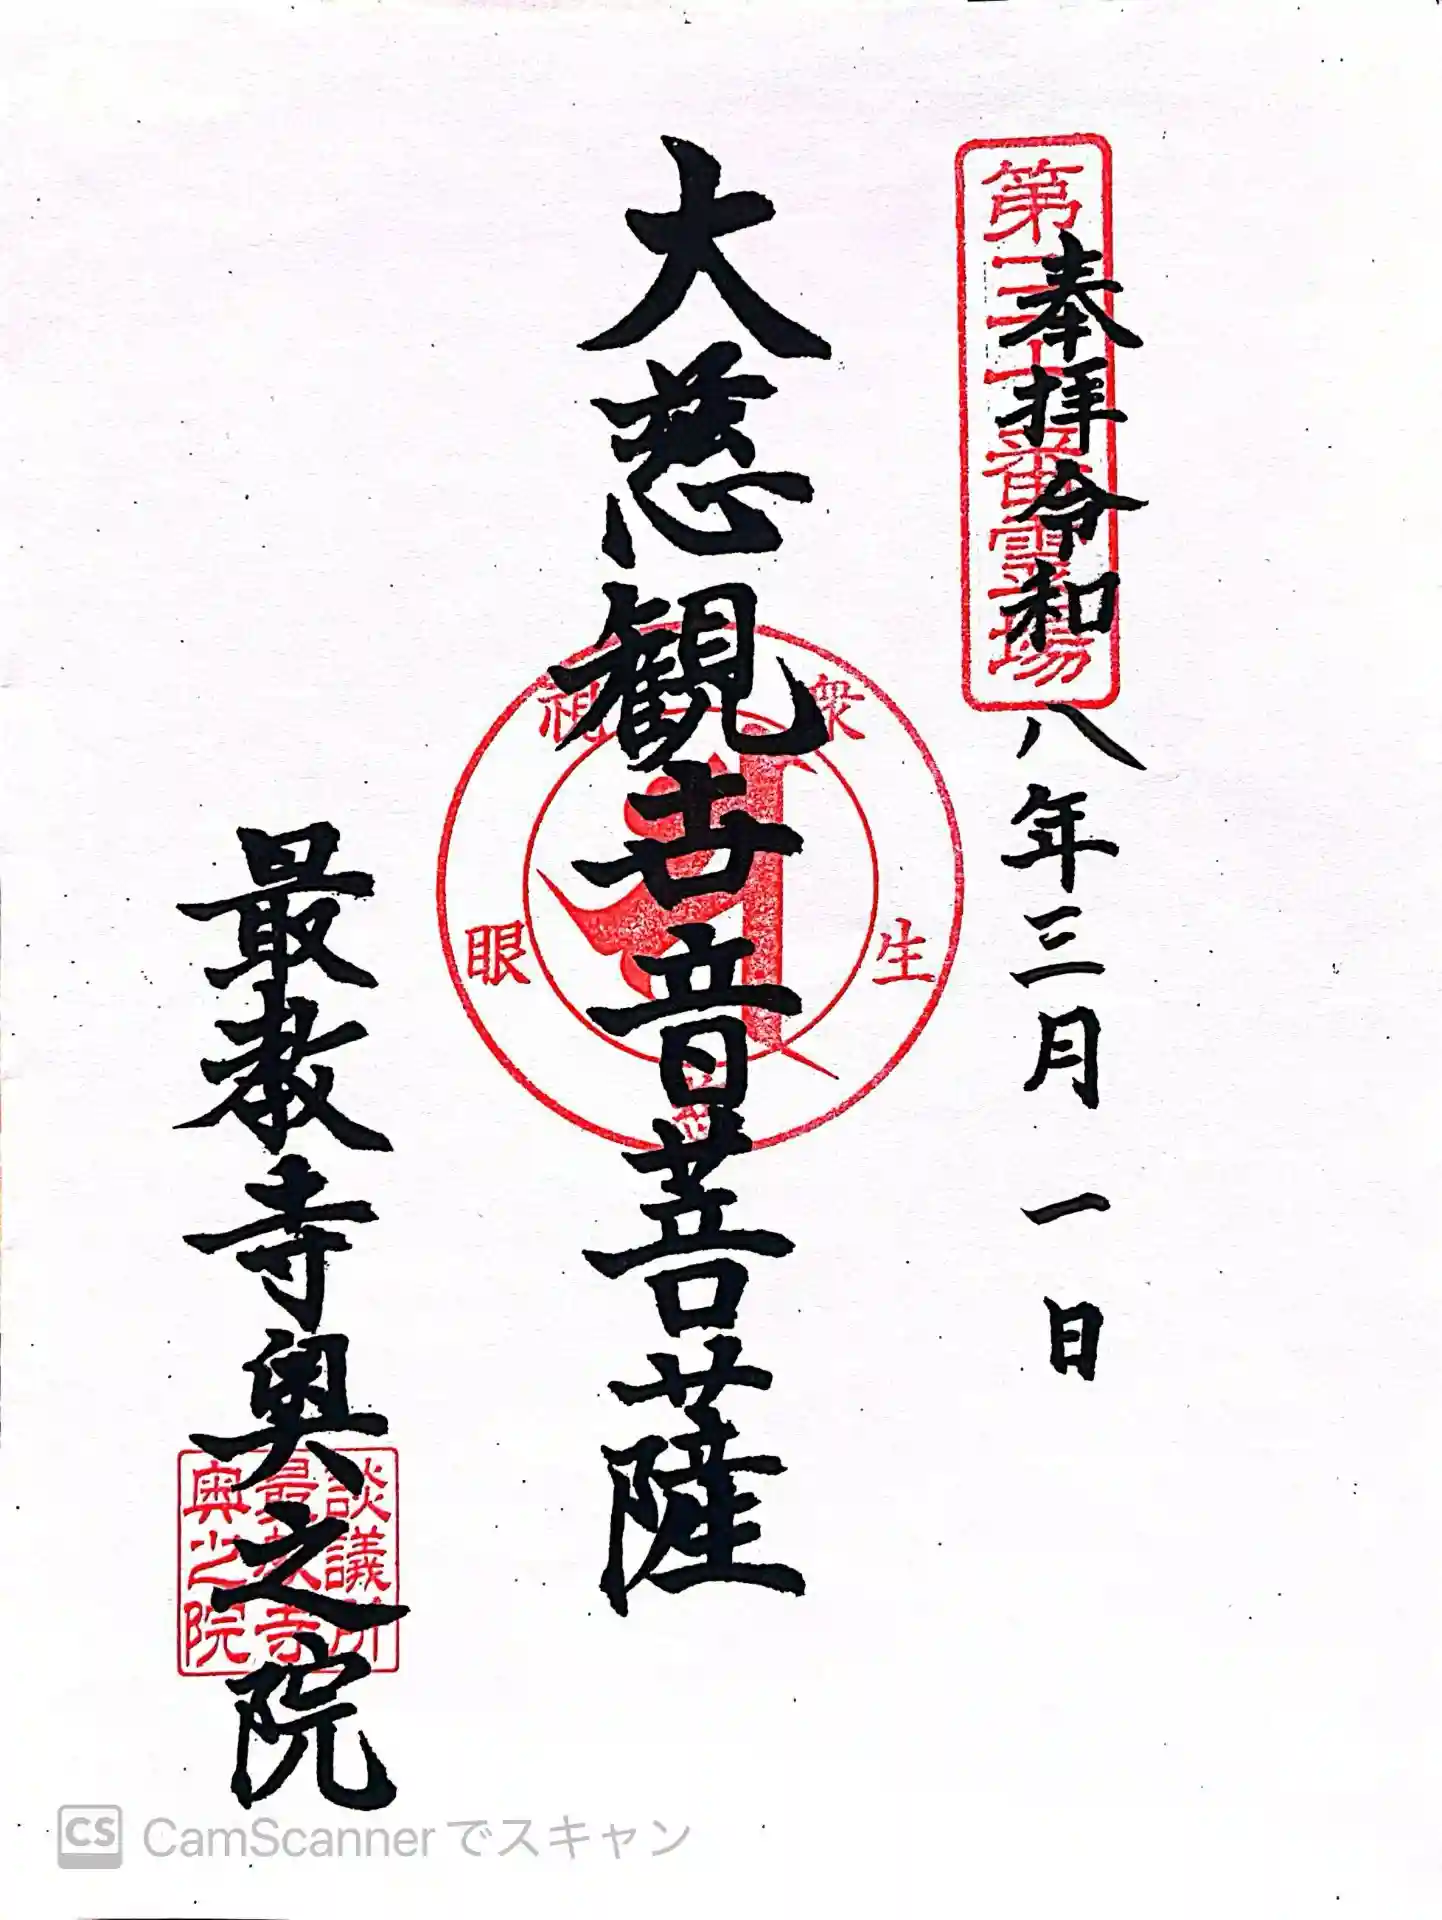 第 番霊場
奉拝令和八年三月一日
大慈観世音菩薩
慈眼視衆生
最教寺奥之院
談議所
最教寺
奥之院
CS CamScannerでスキャン